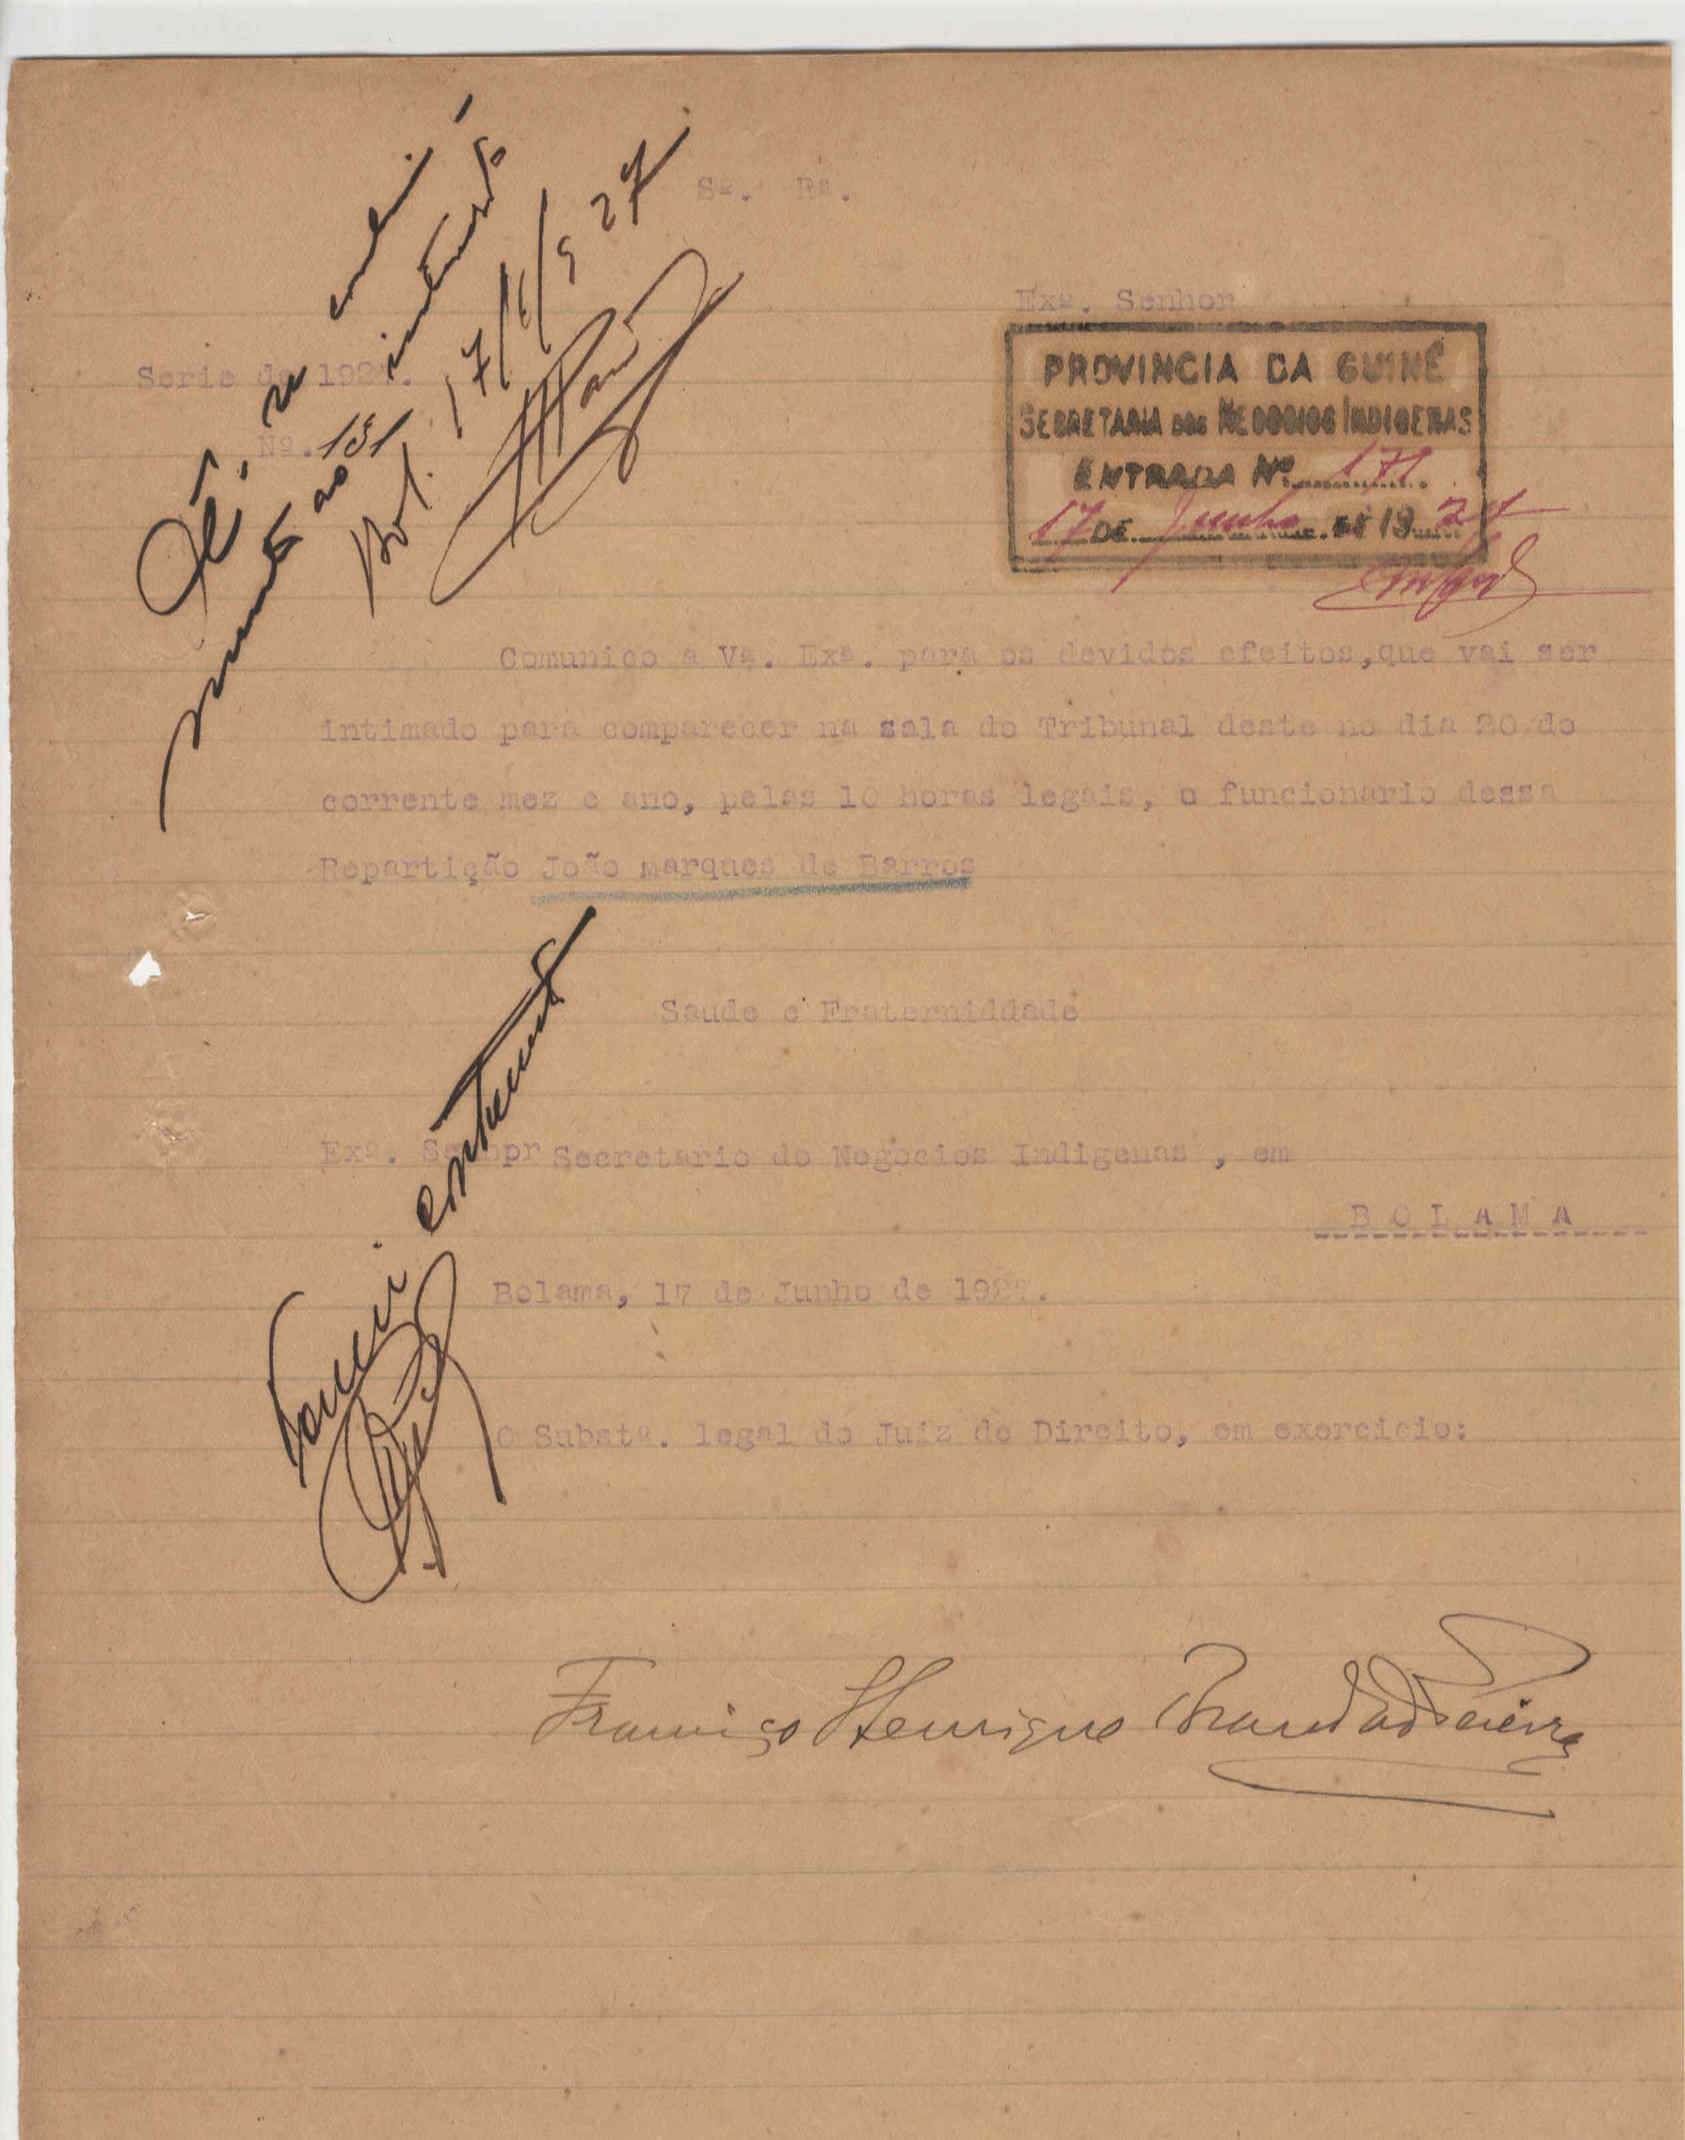 Sª. Rª.
Exº. Senhor
Serie de 192
Nº. 131
PROVINCIA DA GUINÉ
SECRETARIA DOS NEGOCIOS INDIGENAS
ENTRADA Nº 171
17 DE Junho DE 19 27
ao
Bol. 17/6/927
Comunico a Vª. Exª. para os devidos efeitos,que vai ser
intimado para comparecer na sala do Tribunal deste no dia 20 do
corrente mez e ano, pelas 10 horas legais, o funcionario dessa
Repartição João Marques de Barros
Saude e Fraterniddade
Exº. Senhpr Secretario do Negocios Indigenas , em
BOLAMA
Bolama, 17 de Junho de 192
O Substº. legal do Juiz de Direito, em exercicio:
Tomei conhecimento
Francisco Henrique Brandão Pereira